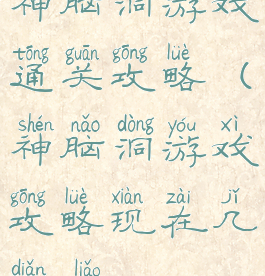 神脑洞游戏
tōng guān gōng lüè
通关攻略(
shén nǎo dòng yóu xì
神脑洞游戏
gōng lüè xiàn zài jǐ
攻略现在几
diǎn liǎo